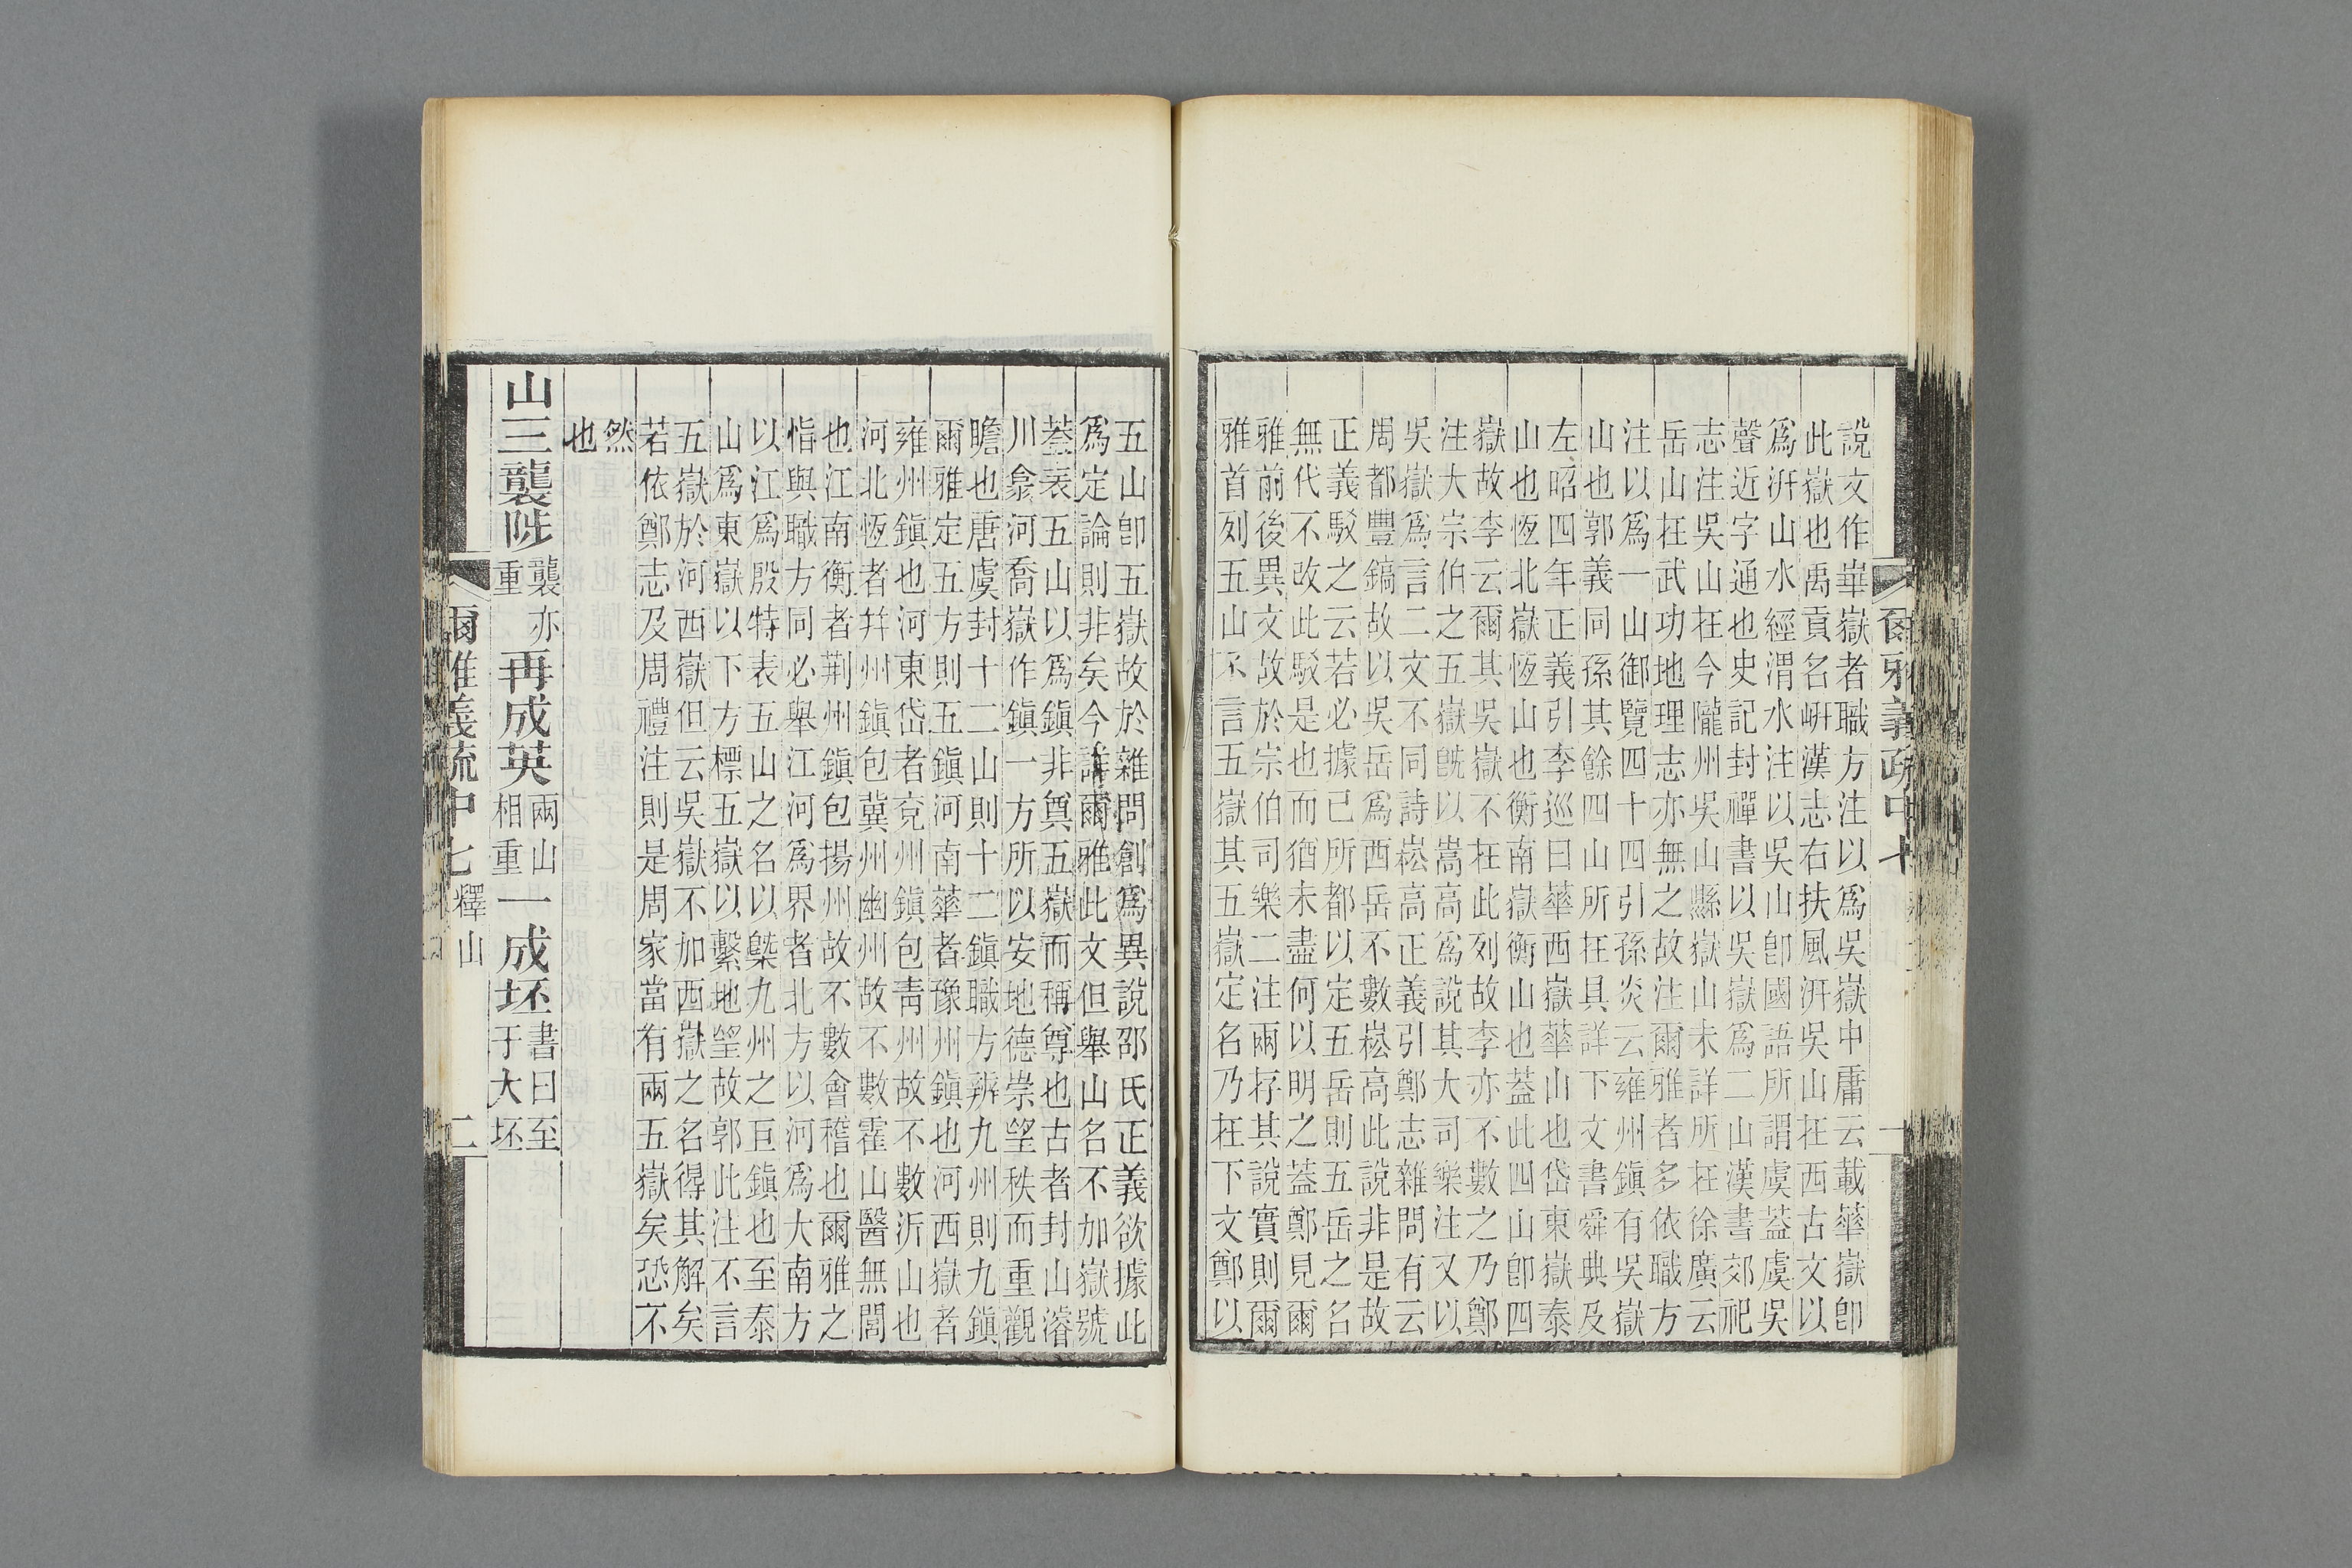 說文作崋嶽者職方注以爲吳嶽中庸云載華嶽卽
此嶽也禹貢名岍漢志右扶風汧吳山在西古文以
爲汧山水經渭水注以吳山卽國語所謂虞葢虞吳
聲近字通也史記封禪書以吳嶽爲二山漢書郊祀
志注吳山在今隴州吳山縣嶽山未詳所在徐廣云
岳山在武功地理志亦無之故注爾雅者多依職方
注以爲一山御覽四十四引孫炎云雍州鎮有吳嶽
山也郭義同孫其餘四山所在具詳下文書舜典及
左昭四年正義引李巡曰華西嶽華山也岱東嶽泰
山也恆北嶽恆山也衡南嶽衡山也葢此四山卽四
嶽故李云爾其吳嶽不在此列故李亦不數之乃鄭
注大宗伯之五嶽旣以嵩高爲說其大司樂注又以
吳嶽爲言二文不同詩崧高正義引鄭志雜問有云
周都豐鎬故以吳岳爲西岳不數崧高此說非是故
正義駁之云若必據已所都以定五岳則五岳之名
無代不改此駁是也而猶未盡何以明之葢鄭見爾
雅前後異文故於宗伯司樂二注兩存其說實則爾
雅首列五山不言五嶽其五嶽定名乃在下文鄭以
五山卽五嶽故於雜問創爲異說邵氏正義欲據此
爲定論則非矣今詳爾雅此文但舉山名不加嶽號
葢表五山以爲鎮非奠五嶽而稱尊也古者封山濬
川翕河喬嶽作鎮一方所以安地德崇望秩而重觀
瞻也唐虞封十二山則十二鎮職方辨九州則九鎮
爾雅定五方則五鎮河南華者豫州鎮也河西嶽者
雍州鎮也河東岱者兗州鎮包靑州故不數沂山也
河北恆者幷州鎮包冀州幽州故不數霍山醫無閭
也江南衡者荆州鎮包揚州故不數會稽也爾雅之
恉與職方同必舉江河爲界者北方以河爲大南方
以江爲殷特表五山之名以槩九州之巨鎮也至泰
山爲東嶽以下方標五嶽以繫地望故郭此注不言
五嶽於河西嶽但云吳嶽不加西嶽之名得其解矣
若依鄭志及周禮注則是周家當有兩五嶽矣恐不
然
也
山三襲陟 襲亦重 再成英 兩山相重 一成坯 書曰至于大坯
爾雅義疏中七 釋山 二